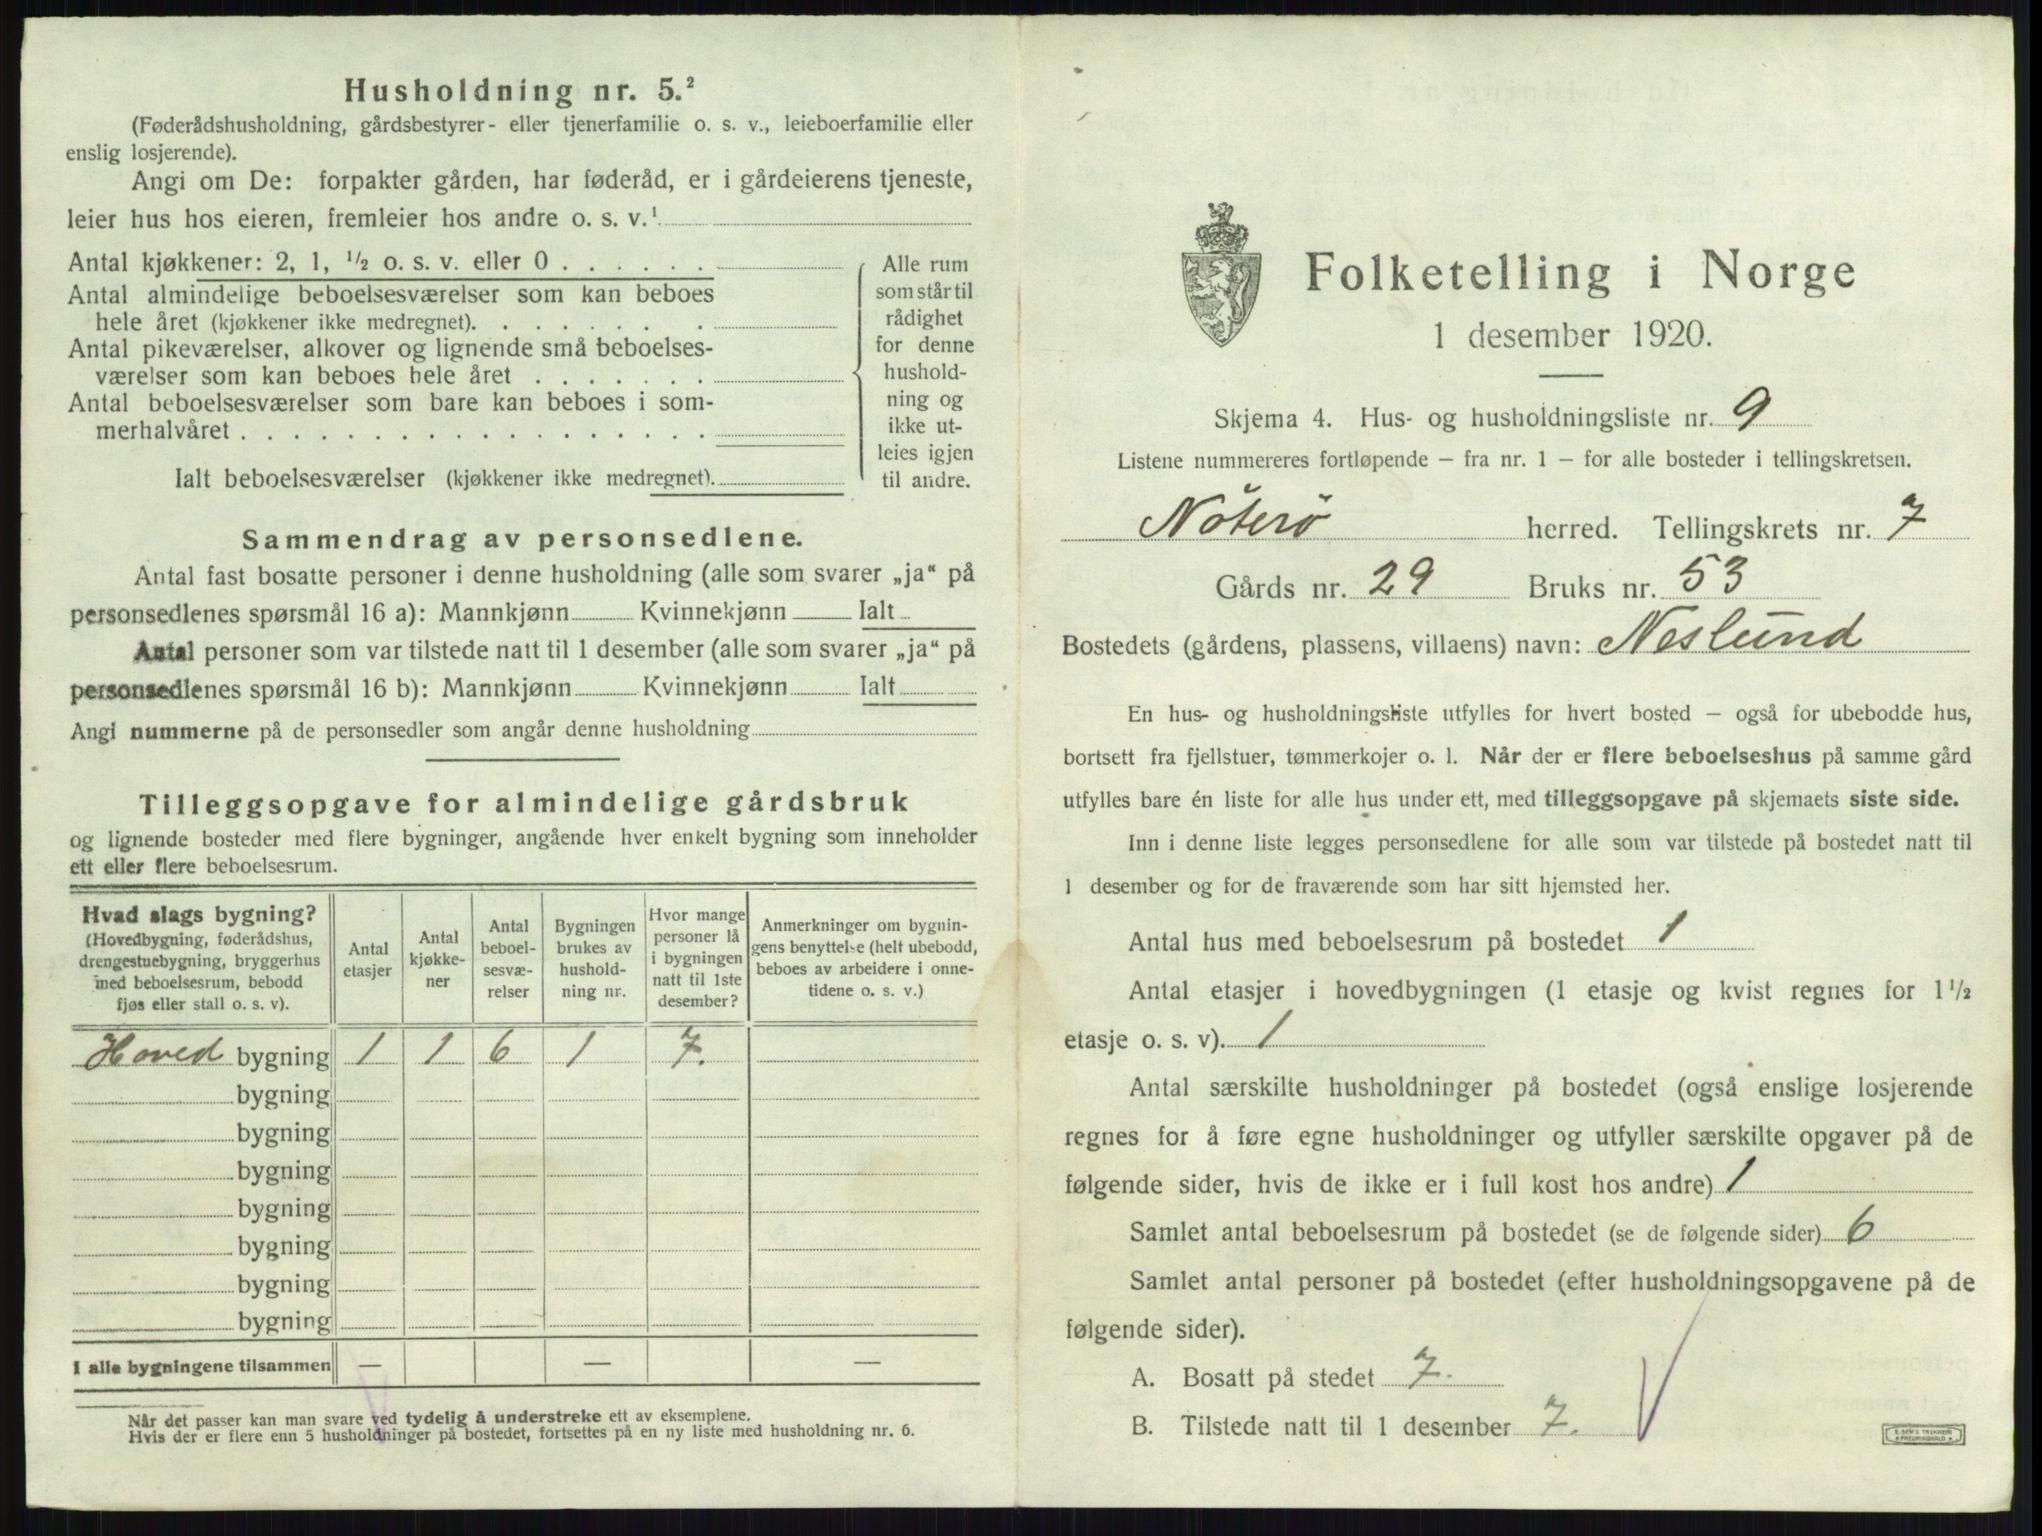 Husholdning nr. 5.²
(Føderådshusholdning, gårdsbestyrer- eller tjenerfamilie o. s. v., leieboerfamilie eller
enslig losjerende).
Angi om De: forpakter gården, har føderåd, er i gårdeierens tjeneste,
leier hus hos eieren, fremleier hos andre o. s. v.¹
Antal kjøkkener: 2, 1, ½ o. s. v. eller 0 . . . . . .
Antal almindelige beboelsesværelser som kan beboes
hele året (kjøkkener ikke medregnet). . . . . . . .
Antal pikeværelser, alkover og lignende små beboelses-
værelser som kan beboes hele året . . . . . . .
Antal beboelsesværelser som bare kan beboes i som-
merhalvåret . . . . . . . . . . . . . . . . . .
Ialt beboelsesværelser (kjøkkener ikke medregnet).
Alle rum
som står til
rådighet
for denne
hushold-
ning og
ikke ut-
leies igjen
til andre.
Sammendrag av personsedlene.
Antal fast bosatte personer i denne husholdning (alle som svarer „ja“ på
personsedlenes spørsmål 16 a): Mannkjønn Kvinnekjønn Ialt
Antal personer som var tilstede natt til 1 desember (alle som svarer „ja“ på
personsedlenes spørsmål 16 b): Mannkjønn Kvinnekjønn Ialt
Angi nummerne på de personsedler som angår denne husholdning
Tilleggsopgave for almindelige gårdsbruk
og lignende bosteder med flere bygninger, angående hver enkelt bygning som inneholder
ett eller flere beboelsesrum.
Hvad slags bygning?
(Hovedbygning, føderådshus,
drengestuebygning, bryggerhus
med beboelsesrum, bebodd
fjøs eller stall o. s. v).
Antal
etasjer
Antal
kjøkke-
ner
Antal
beboel-
sesvæ-
relser
Bygningen
brukes av
hushold-
ning nr.
Hvor mange
personer lå
i bygningen
natt til 1ste
desember?
Anmerkninger om bygnin-
gens benyttelse (helt ubebodd,
beboes av arbeidere i onne-
tidene o. s. v.)
Hoved bygning 1 1 6 1 7.
bygning
bygning
bygning
bygning
bygning
bygning
bygning
I alle bygningene tilsammen — — —
Når det passer kan man svare ved tydelig å understreke ett av eksemplene.
Hvis der er flere enn 5 husholdninger på bostedet, fortsettes på en ny liste med husholdning nr. 6.
Folketelling i Norge
1 desember 1920.
Skjema 4. Hus- og husholdningsliste nr. 9
Listene nummereres fortløpende – fra nr. 1 – for alle bosteder i tellingskretsen.
Nöterö herred. Tellingskrets nr. 7
Gårds nr. 29 Bruks nr. 53
Bostedets (gårdens, plassens, villaens) navn: Neslund
En hus- og husholdningsliste utfylles for hvert bosted – også for ubebodde hus,
bortsett fra fjellstuer, tømmerkojer o. l. Når der er flere beboelseshus på samme gård
utfylles bare én liste for alle hus under ett, med tilleggsopgave på skjemaets siste side.
Inn i denne liste legges personsedlene for alle som var tilstede på bostedet natt til
1 desember og for de fraværende som har sitt hjemsted her.
Antal hus med beboelsesrum på bostedet 1
Antal etasjer i hovedbygningen (1 etasje og kvist regnes for 1½
etasje o. s. v). 1
Antal særskilte husholdninger på bostedet (også enslige losjerende
regnes for å føre egne husholdninger og utfyller særskilte opgaver på de
følgende sider, hvis de ikke er i full kost hos andre) 1
Samlet antal beboelsesrum på bostedet (se de følgende sider) 6
Samlet antal personer på bostedet (efter husholdningsopgavene på de
følgende sider).
A. Bosatt på stedet 7.
B. Tilstede natt til 1 desember 7.